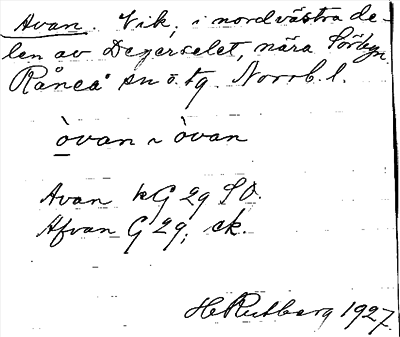 Avan. Vik, i nordvästra de-
len av Degerselet, nära Sörbyn
Råneå sn o. tg. Norrb. l.
òvan ~ òvan
Avan kG 2g SO.
Afvan G 2g, ek.
H Rutberg 1927.